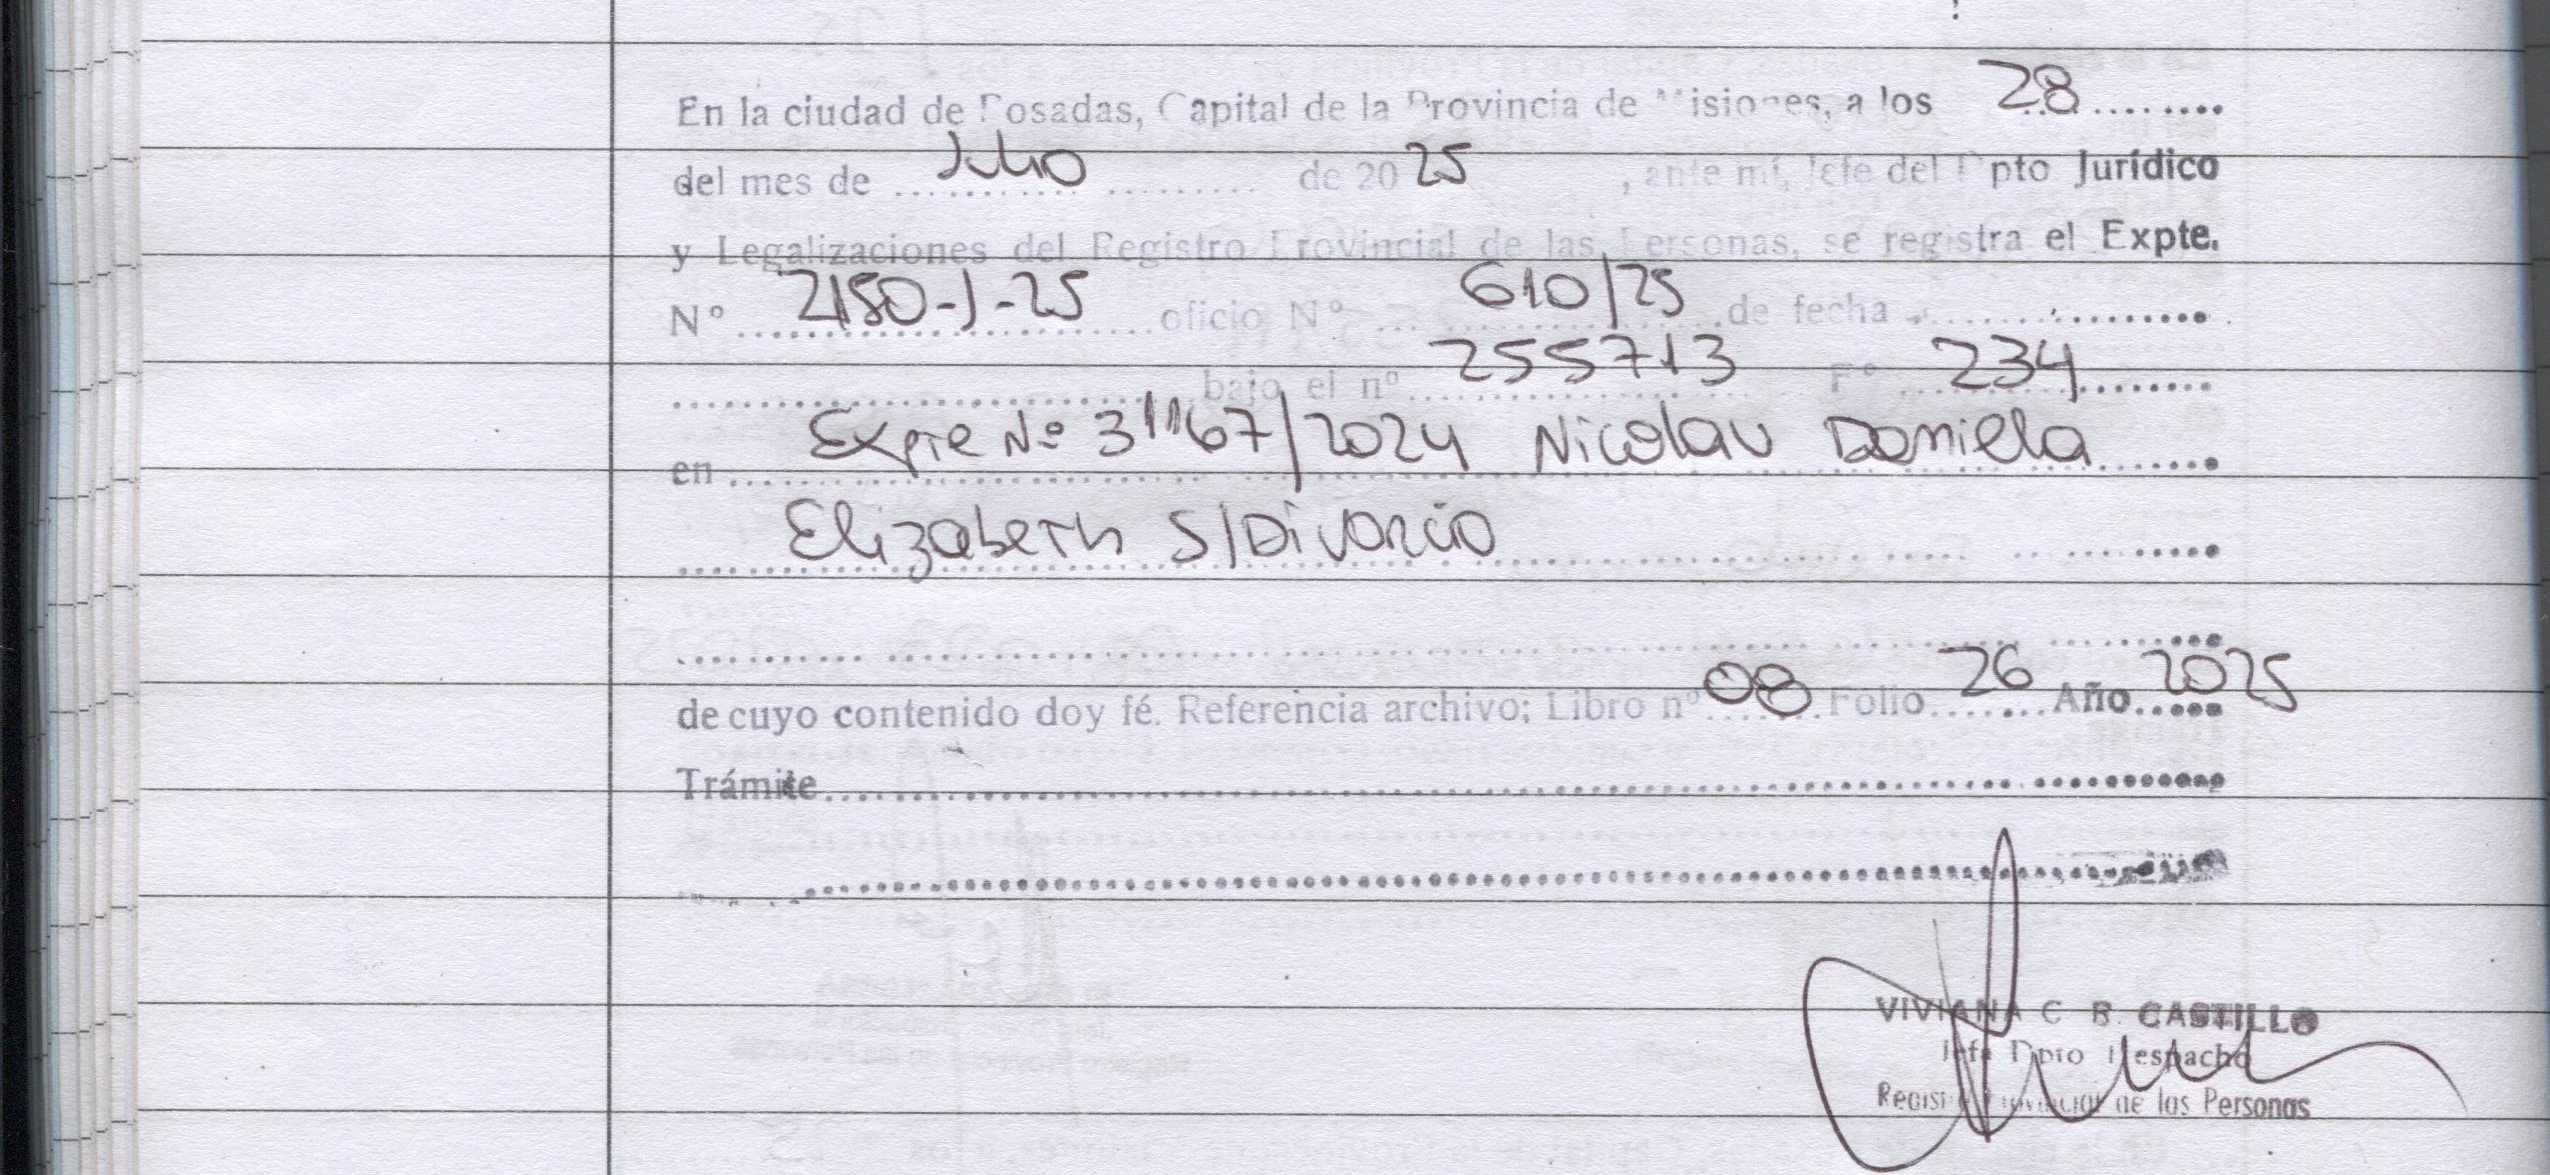 En la ciudad de Posadas, Capital de la Provincia de Misiones, a los 28........
del mes de .... Julio ......... de 20 25 , ante mí, Jefe del Dpto Jurídico
y Legalizaciones del Registro Provincial de las Personas, se registra el Expte.
Nº 2150-J-25 oficio Nº 610/25 de fecha ..........
.......... bajo el nº 255713 Fº 234 ........
en Expte Nº 31167/2024 Nicolau Daniela
Elizabeth S/Divorcio
de cuyo contenido doy fé. Referencia archivo: Libro nº 08 Folio 26 Año 2025
Trámite..........
VIVIANA C. B. CASTILLO
Jefa Dpto Despacho
Registro Provincial de las Personas